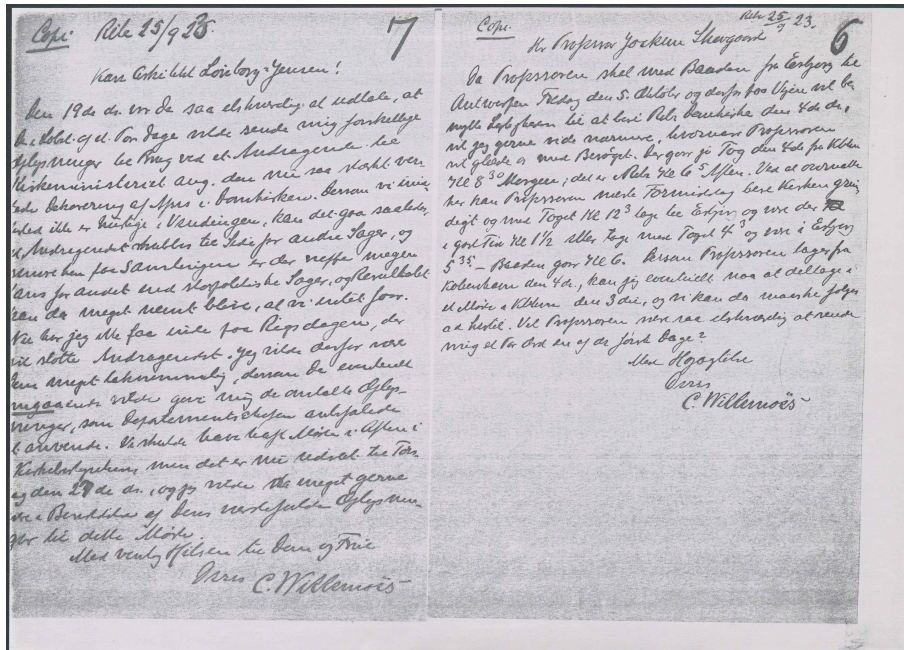 Copi. Ribe 25/9 23. 7
Kære Arkitekt Lønborg-Jensen!
Den 19de ds. var De saa elskværdig at udtale, at
De i Løbet af et Par Dage vilde sende mig forskellige
Oplysninger til Brug ved et Andragende til
Kirkeministeriet ang. den nu saa stærkt ven-
tede Dekorering af Apsis i Domkirken. Dersom vi imid-
lertid ikke er hurtige i Vendingen, kan det gaa saaledes,
at Andragendet skubbes til Side for andre Sager, og
Samlingen er der næppe megen
Sans for andet end storpolitiske Sager, og Resultatet
kan da meget nemt blive, at vi intet faar.
Nu har jeg ikke faa inde paa Rigsdagen, der
vil støtte Andragendet. Jeg vilde derfor være
Dem meget taknemmelig, dersom De eventuelt
omgaaende vilde give mig de omtalte Oplys-
ninger, som Departementschefen anbefalede
at anvende. Vi skulde have haft Møde i Aften i
Kirkebestyrelsen, men det er nu udsat til Tors-
dag den 27de ds., og jeg vilde meget gerne
være i Besiddelse af Deres værdifulde Oplysnin-
ger til dette Møde.
Med venlig Hilsen til Dem og Frue
Deres
C. Willemoës
Copi. Ribe 25/9 23. 6
Hr Professor Joakim Skovgaard
Da Professoren skal med Baaden fra Esbjerg til
Antwerpen Fredag den 5. Oktober og derfor paa Vejen vil be-
nytte Lejligheden til at bese Ribe Domkirke den 4de ds,
vil jeg gerne vide nærmere, hvornaar Professoren
vil glæde os med Besøget. Der gaar jo Tog den 4de fra Kbhn
Kl 8 30 Morgen; det er i Ribe Kl 6 5 Aften. Ved at overnatte
her kan Professoren næste Formiddag bese Kirken grun-
digt og med Toget Kl 12 3 tage til Esbjerg og være der
i god Tid Kl 1½ eller tage med Toget 4 3 og være i Esbjerg
5 35 – Baaden gaar Kl 6. Dersom Professoren tager fra
København den 4de, kan jeg eventuelt naa at deltage i
et Møde i Kbhvn den 3die, og vi kan da maaske følges
ad hertil. Vil Professoren være saa elskværdig at sende
mig et Par Ord en af de første Dage?
Med Højagtelse
Deres
C. Willemoës